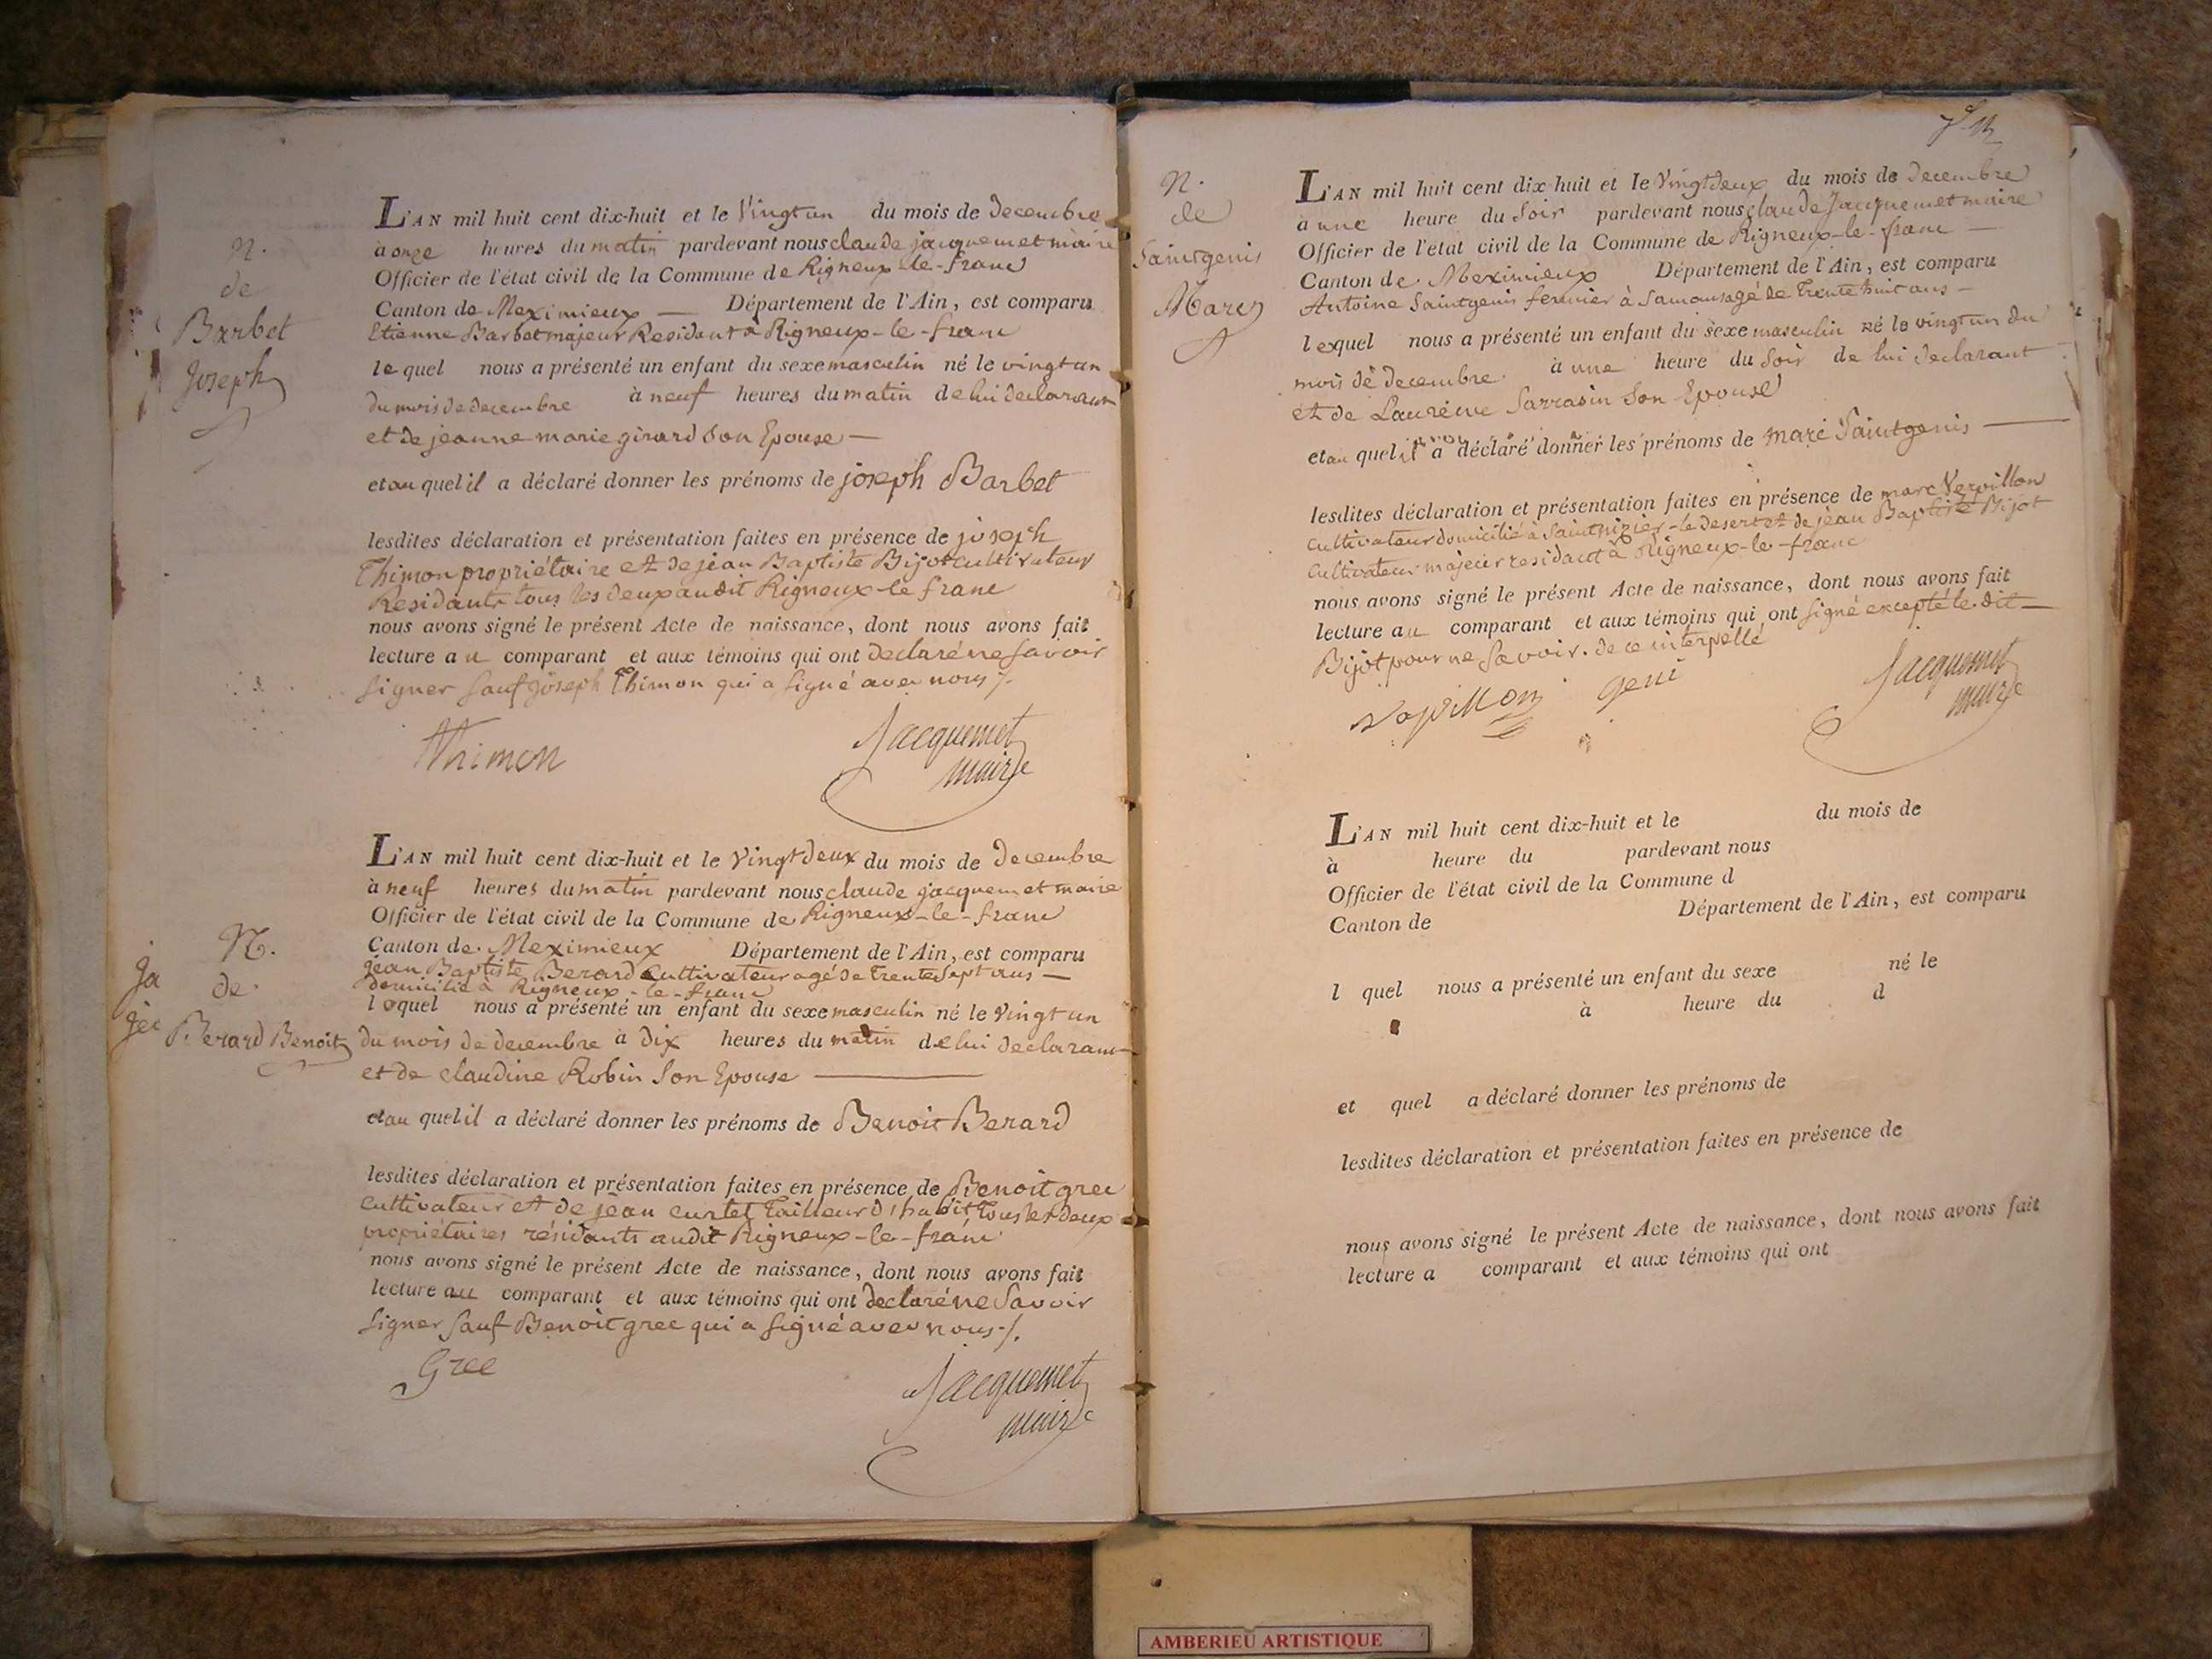 N.
de
Barbet
Joseph
L'AN mil huit cent dix-huit et le vingt un du mois de decembre
à onze heures du matin pardevant nous claude jacquemet maire
Officier de l'état civil de la Commune de Rigneux-le-franc
Canton de Meximieux — Département de l'Ain, est comparu
Etienne Barbet majeur Residant à Rigneux-le-franc
le quel nous a présenté un enfant du sexe masculin né le vingt un
du mois de decembre à neuf heures du matin de lui declarant
et de jeanne marie girard son Epouse —
et au quel il a déclaré donner les prénoms de joseph Barbet
lesdites déclaration et présentation faites en présence de joseph
Thimon propriétaire et de jean Baptiste Bijot cultivateur
Residants tous les deux audit Rigneux-le franc
nous avons signé le présent Acte de naissance, dont nous avons fait
lecture au comparant et aux témoins qui ont declaré ne savoir
signer sauf joseph Thimon qui a signé avec nous /.
Thimon
Jacquemet
maire
N.
de
Berard Benoit
ja
L'AN mil huit cent dix-huit et le vingt deux du mois de decembre
à neuf heures du matin pardevant nous claude jacquemet maire
Officier de l'état civil de la Commune de Rigneux-le-franc
Canton de Meximieux Département de l'Ain, est comparu
jean Baptiste Berard cultivateur agé de trente sept ans —
domicilié à Rigneux-le-franc
lequel nous a présenté un enfant du sexe masculin né le vingt un
du mois de decembre à dix heures du matin de lui declarant
et de claudine Robin son Epouse —
et au quel il a déclaré donner les prénoms de Benoit Berard
lesdites déclaration et présentation faites en présence de Benoit gree
cultivateur et de jean curtet tailleur d'habit tous les deux
propriétaires résidants audit Rigneux-le-franc
nous avons signé le présent Acte de naissance, dont nous avons fait
lecture au comparant et aux témoins qui ont declaré ne savoir
signer sauf Benoit gree qui a signé avec nous /.
Gree
Jacquemet
maire
N.
de
Saintgenis
Marc
L'AN mil huit cent dix-huit et le vingt deux du mois de decembre
à une heure du soir pardevant nous claude jacquemet maire
Officier de l'état civil de la Commune de Rigneux-le-franc —
Canton de Meximieux Département de l'Ain, est comparu
Antoine Saintgenis fermier à Samans agé de trente huit ans —
lequel nous a présenté un enfant du sexe masculin né le vingt un du
mois de decembre à une heure du soir de lui declarant
et de Laurence Sarrasin son Epouse
et au quel il a déclaré donner les prénoms de marc Saintgenis —
lesdites déclaration et présentation faites en présence de marc Verpillon
cultivateur domicilié à Saint nizier-le desert et de jean Baptiste Bijot
cultivateur majeur residant à Rigneux-le-franc
nous avons signé le présent Acte de naissance, dont nous avons fait
lecture au comparant et aux témoins qui ont signé excepté le dit —
Bijot pour ne savoir. de ce interpellé
geni
Jacquemet
maire
L'AN mil huit cent dix-huit et le du mois de
à heure du pardevant nous
Officier de l'état civil de la Commune d
Canton de Département de l'Ain, est comparu
l quel nous a présenté un enfant du sexe né le
à heure du d
et quel a déclaré donner les prénoms de
lesdites déclaration et présentation faites en présence de
nous avons signé le présent Acte de naissance, dont nous avons fait
lecture a comparant et aux témoins qui ont
AMBERIEU ARTISTIQUE